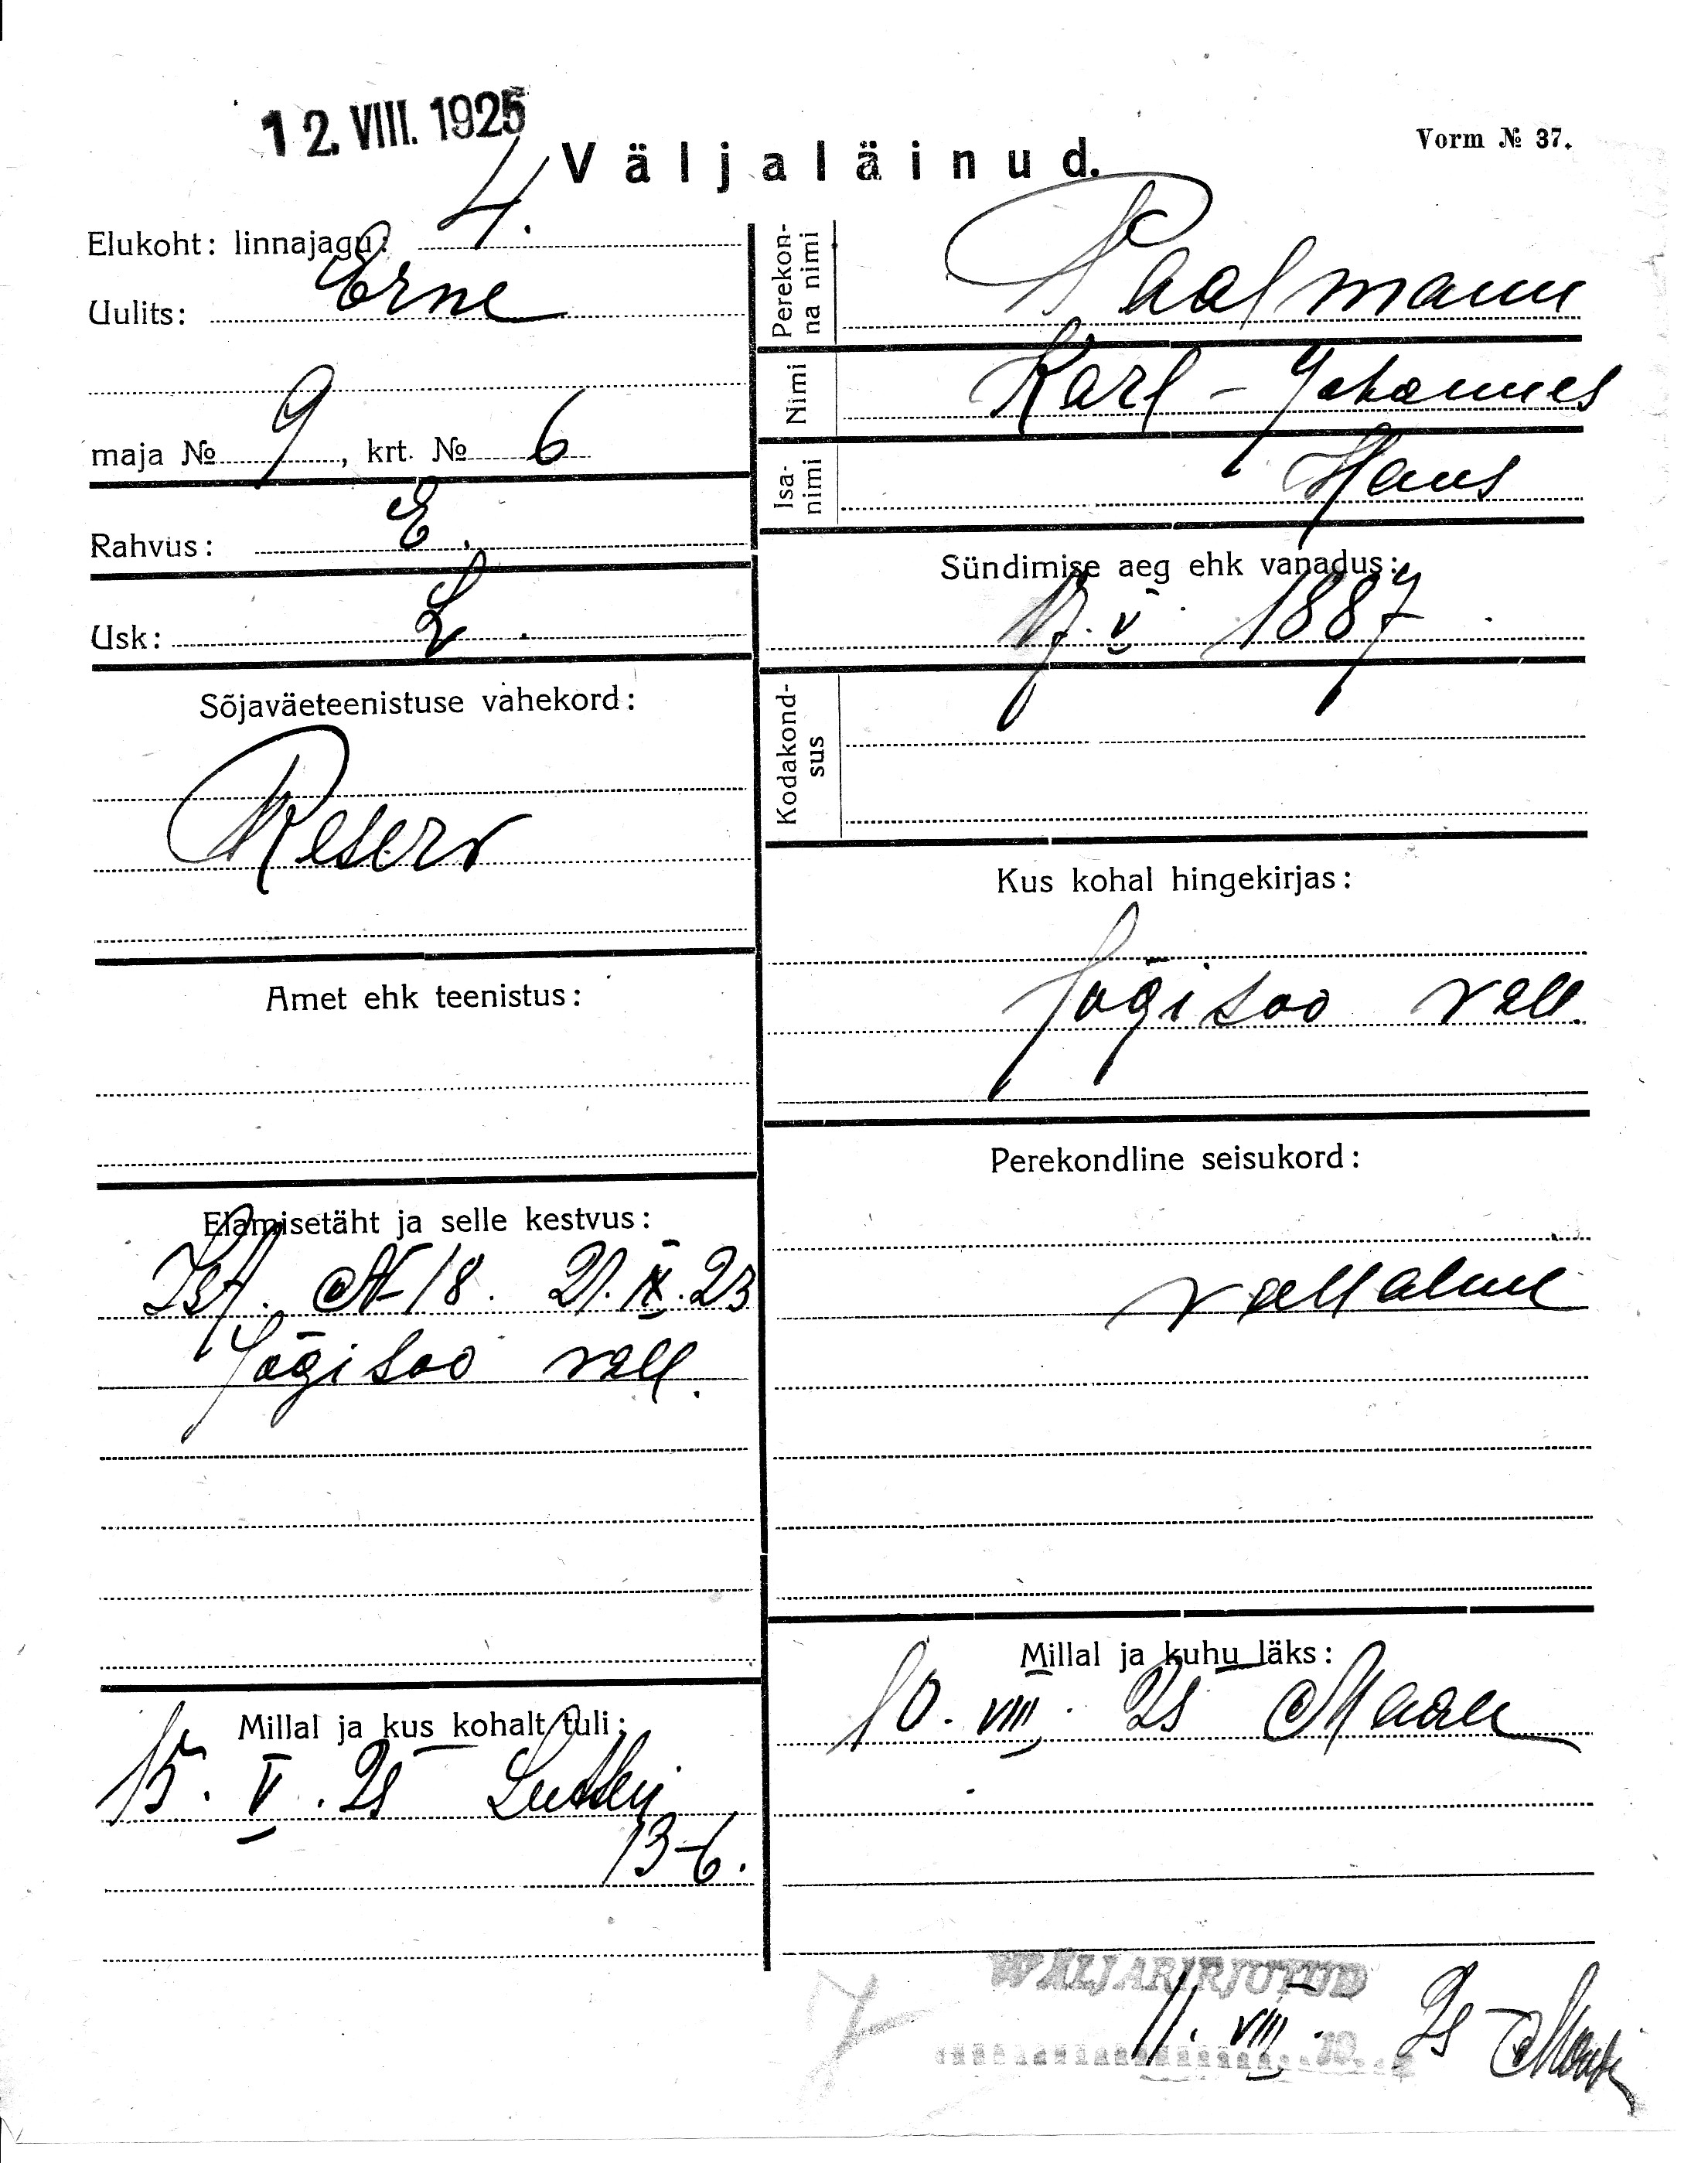 12. VIII. 1925
Väljaläinud.
Vorm № 37.
Elukoht: linnajagu: 4.
Uulits: Erne
maja № 9, krt. № 6
Rahvus: E.
Usk: L.
Sõjaväeteenistuse vahekord:
Reserv
Amet ehk teenistus:
Elamisetäht ja selle kestvus:
Ist. № 18. 21. IX. 23
Jõgisoo vall.
Millal ja kus kohalt tuli:
15. V. 25
13-6.
Perekon-
na nimi
Paalmann
Nimi
Karl-Johannes
Isa-
nimi
Hans
Sündimise aeg ehk vanadus:
17. V. 1887
Kodakond-
sus
Kus kohal hingekirjas:
Jõgisoo vall.
Perekondline seisukord:
vallaline
Millal ja kuhu läks:
10. VIII. 25 Maale
WÄLJAKIRJUTUD
11. VIII. 25